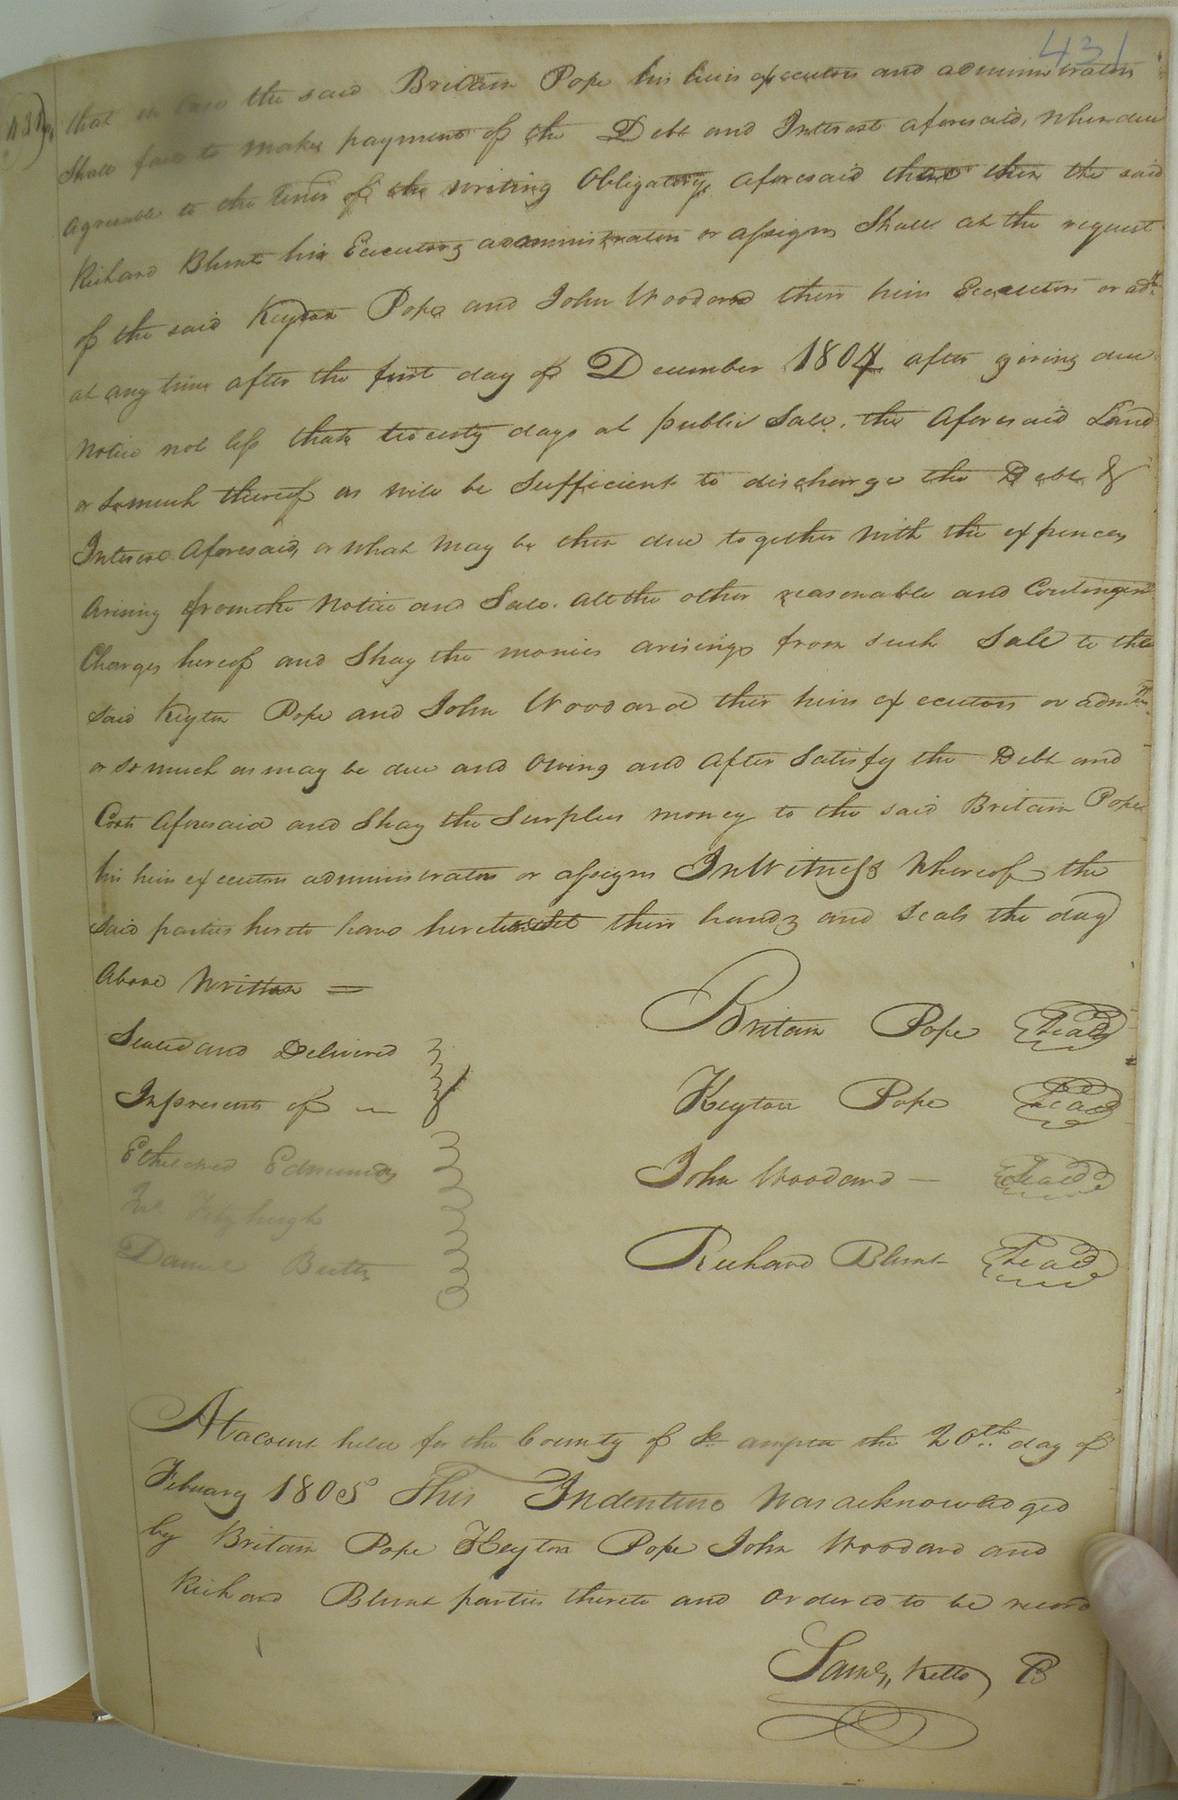 431
that in Case the said Britain Pope his heirs executors and administrators
Shall fail to make payment of the Debt and Interest aforesaid, when due
agreeable to the Tenor of the writing Obligatory aforesaid that then the said
Richard Blunt his Executors administrators or assigns Shall at the request
of the said Keyton Pope and John Woodard their heirs Executors or adrs
at any time after the first day of December 1804 after giving due
notice not less than twenty days at public Sale, the Aforesaid Land
or so much thereof as will be Sufficient to discharge the Debt &
Interest Aforesaid, or what may be then due together with the expences
Arising from the Notice and Sale. all the other reasonable and Contingent
Charges hereof and Shay the monies arising from such Sale to the
said Keyton Pope and John Woodard their heirs executors or admrs
or so much as may be due and Owing and after Satisfy the Debt and
Costs Aforesaid and Shay the Surplus money to the said Britain Pope
his heirs executors administrators or assigns In Witness Whereof the
said parties hereto have hereunto set their hands and Seals the day
Above Written =
Sealed and Delivered
In presents of
Etheldred Edmunds
Fitzhugh
Daniel Butts
Britain Pope Seal
Keyton Pope Seal
John Woodard — Seal
Richard Blunt Seal
At a Court held for the County of So ampton the 20th day of
Febuary 1805 This Indenture Was acknowledged
by Britain Pope Keyton Pope John Woodard and
Richard Blunt parties thereto and ordered to be record
Saml, Kello